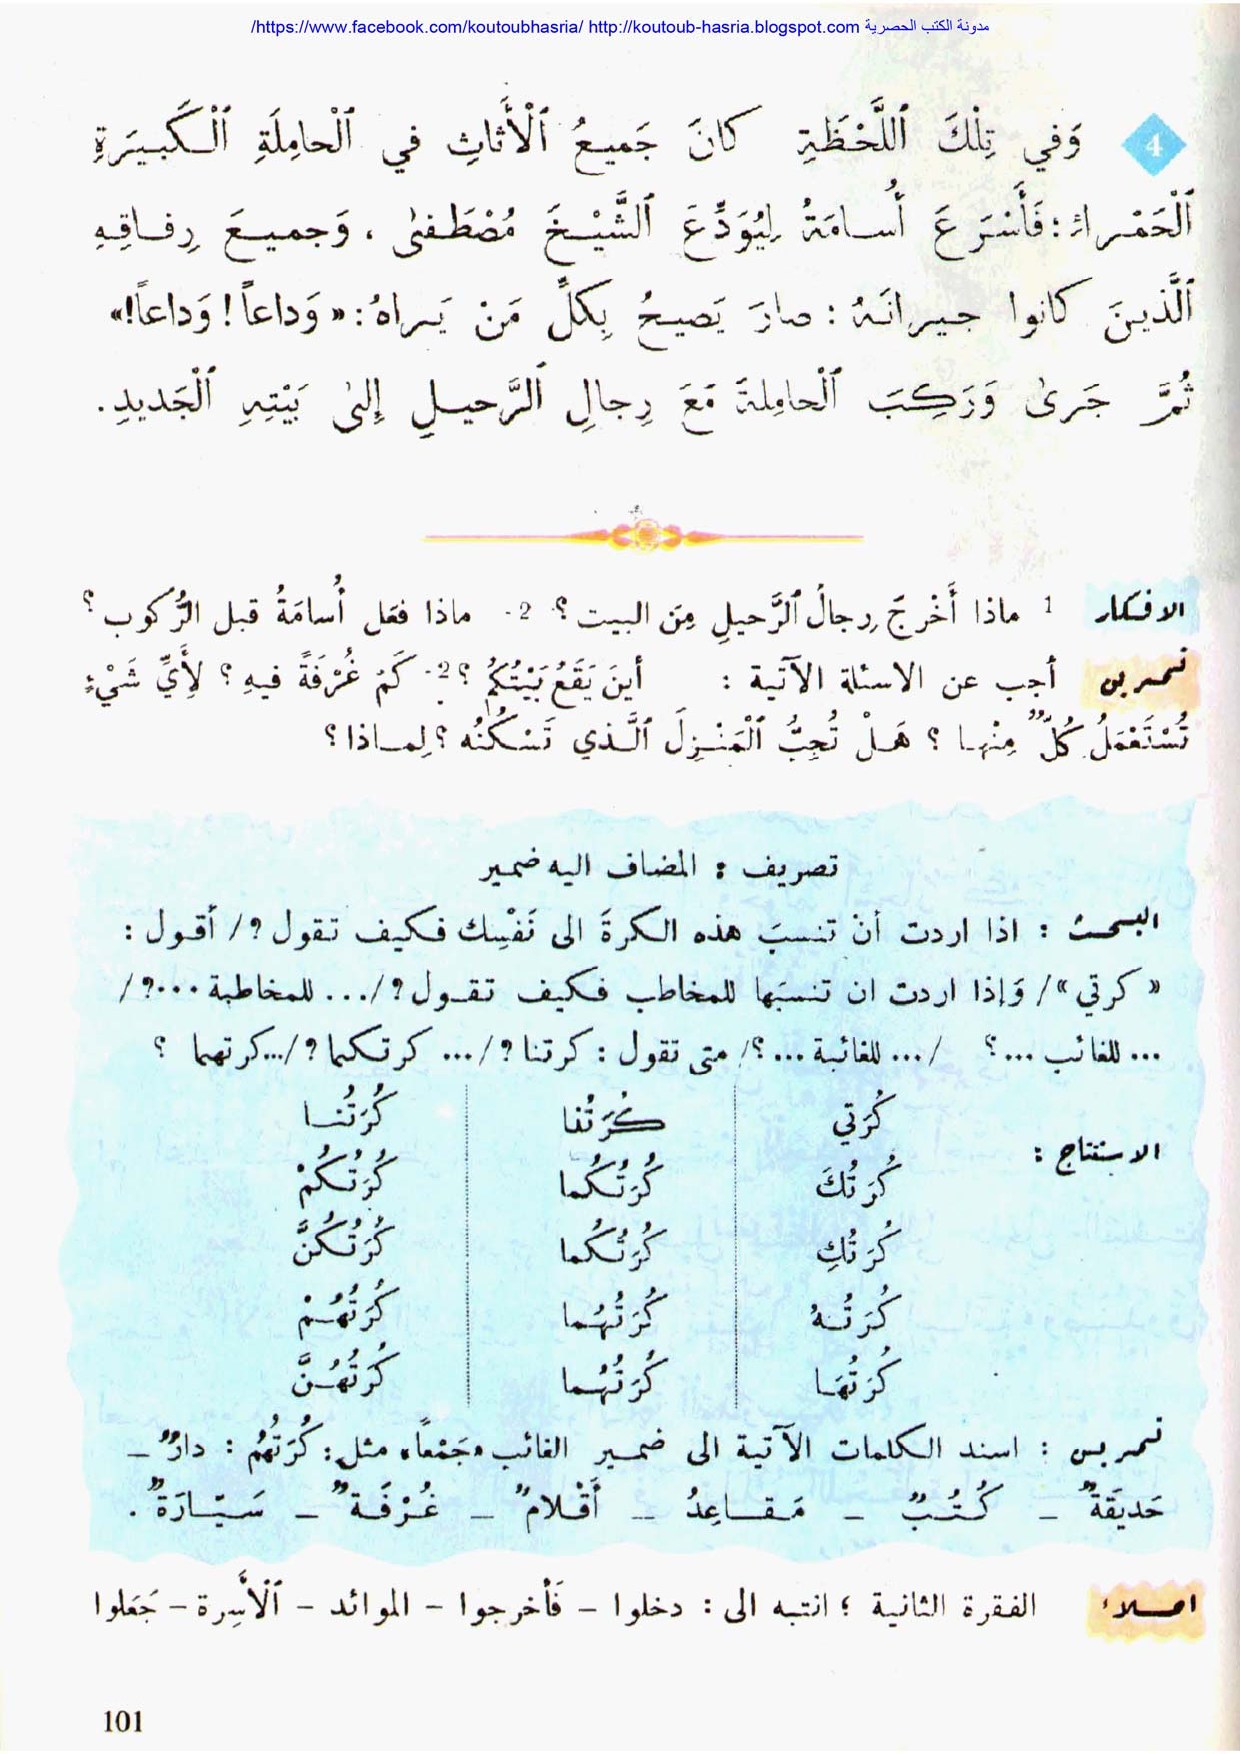 /https://www.facebook.com/koutoubhasria/ http://koutoub-hasria.blogspot.com مدونة الكتب الحصرية
4 وَفي تِلْكَ ٱللَّحْظَةِ كانَ جَميعُ ٱلْأَثاثِ في ٱلْحامِلَةِ ٱلْكَبيرَةِ
ٱلْحَمْراءِ : فَأَسْرَعَ أُسامَةُ لِيُوَدِّعَ ٱلشَّيْخَ مُصْطَفىٰ ، وَجميعَ رِفاقِهِ
ٱلَّذينَ كانوا جيرانَهُ : صارَ يَصيحُ بِكلِّ مَنْ يَراهُ : « وَداعاً ! وَداعاً! »
ثُمَّ جَرىٰ وَرَكِبَ ٱلْحامِلةَ مَعَ رِجالِ ٱلرَّحيلِ إِلىٰ بَيْتِهِ ٱلْجَديدِ .
الافكار 1 ماذا أَخْرجَ رِجالُ ٱلرَّحيلِ مِنَ البيت ؟ 2 - ماذا فعَل أُسامَةُ قبل الرُّكوب ؟
تمرين أجب عن الاسئلة الآتية : أينَ يَقَعُ بَيْتُكُمْ ؟ 2 - كَمْ غُرْفَةً فيهِ ؟ لِأَيِّ شَيْءٍ
تُسْتَعْمَلُ كُلٌّ مِنْها ؟ هَلْ تُحِبُّ ٱلْمَنْزِلَ ٱلَّذي تَسْكُنُه ؟ لِماذا ؟
تصريف : المضاف اليه ضمير
البحث : اذا اردت أنْ تنسبَ هذه الكرةَ الى نَفْسِك فكيف تقول ؟ / أقول :
« كرتي » / وَإذا اردت ان تنسبَها للمخاطب فكيف تقول ؟ /... للمخاطبة ...؟ /
... للغائب ...؟ /... للغائبة ...؟ / متى تقول : كرتنا ؟ /... كرتكما ؟ /...كرتهما ؟
الاستنتاج : كُرَتي كُرَتُنا كُرَتُنا
كُرَتُكَ كُرَتُكُما كُرَتُكُمْ
كُرَتُكِ كُرَتُكُما كُرَتُكُنَّ
كُرَتُهُ كُرَتُهُما كُرَتُهُمْ
كُرَتُهَا كُرَتُهُما كُرَتُهُنَّ
تمرين : اسند الكلمات الآتية الى ضمير الغائب «جَمْعاً» مثل : كُرَتُهُمْ : دارٌ -
حَديقَةٌ - كُتُبٌ - مَقاعِدُ - أَقْلامٌ - غُرْفَةٌ - سَيّارَةٌ .
املاء الفقرة الثانية ؛ انتبه الى : دخلوا - فَأخرجوا - الموائد - ٱلْأَسِرة - جَعَلوا
101